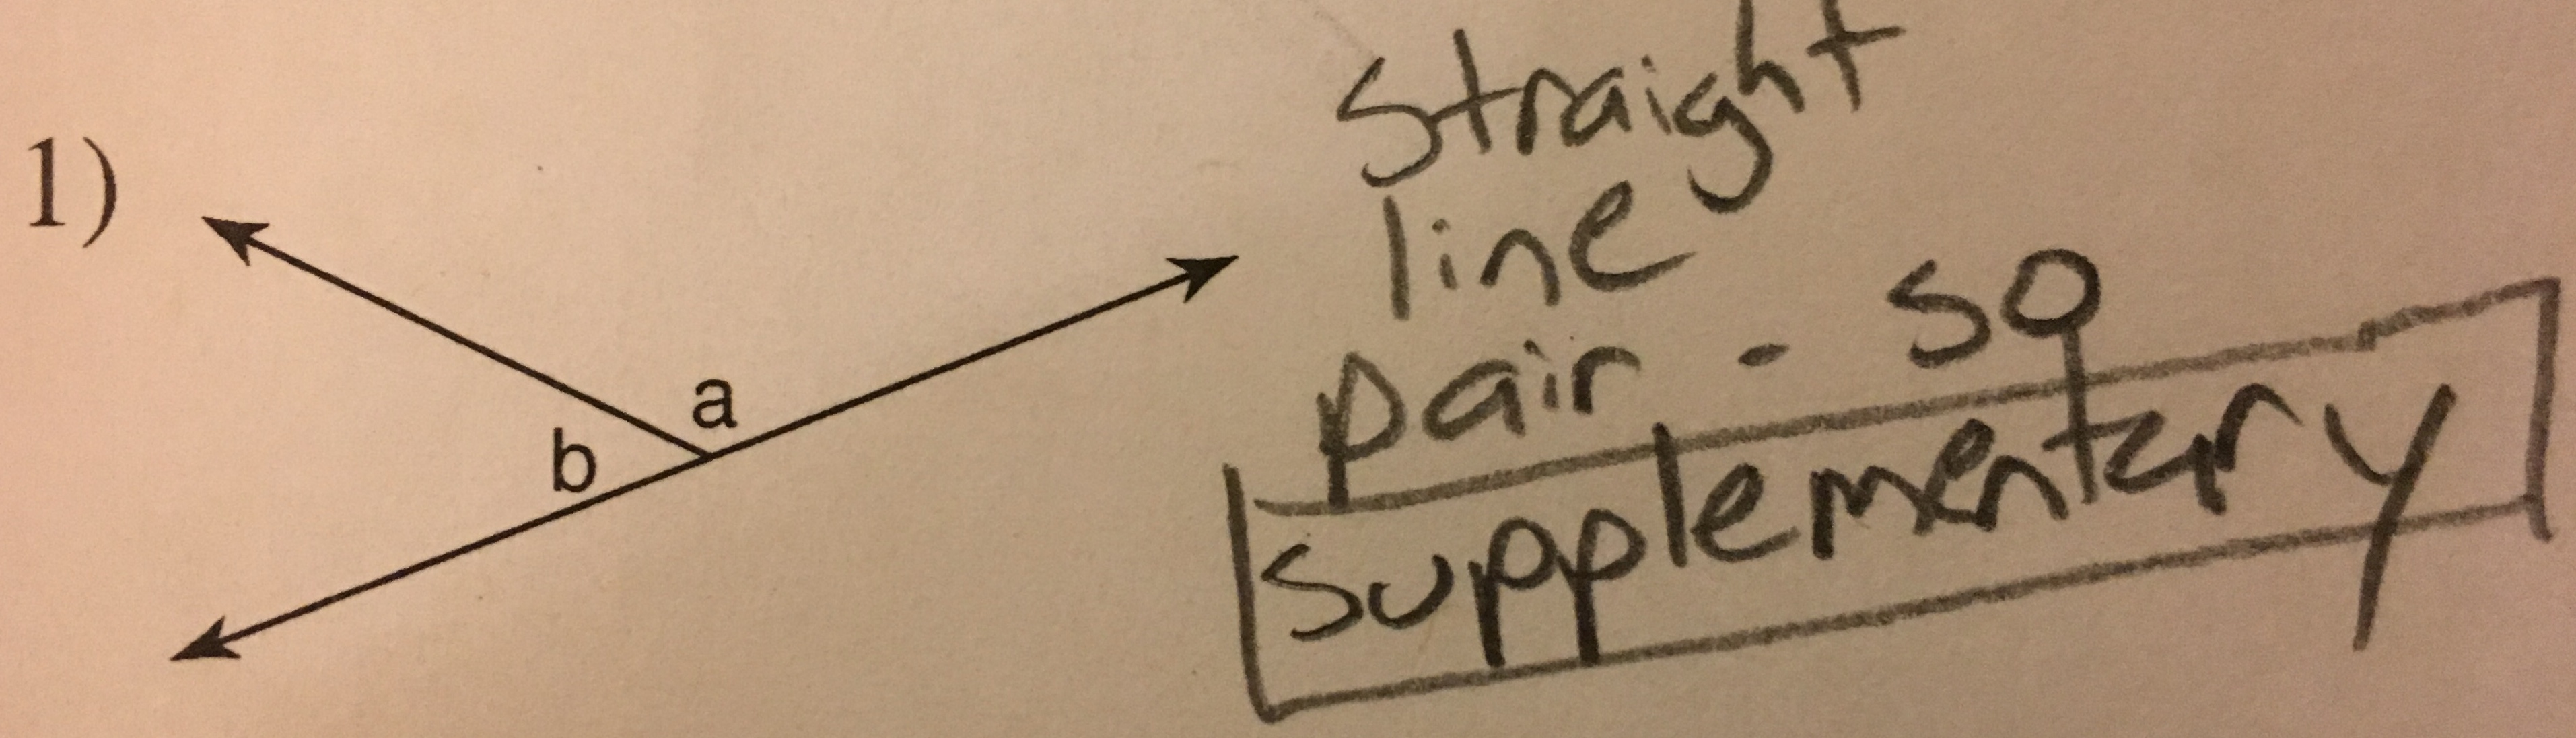 1)
a
b
straight
line
pair - so
supplementary